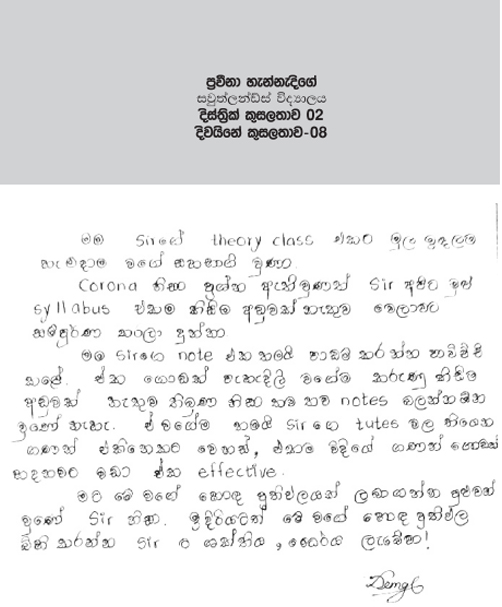 ප්‍රවීනා හැන්නැදිගේ
සවුත්ලන්ඩ්ස් විද්‍යාලය
දිස්ත්‍රික් කුසලතාව 02
දිවයිනේ කුසලතාව-08
මම Sirගේ theory class එකට මුල ඉදලම
හැමදාම වගේ සහභාගි වුණා.
Corona නිසා ප්‍රශ්න ඇතිවුණත් Sir අපිට මුළු
syllabus එකම කිසිම අඩුවක් නැතුව වෙලාවට
සම්පූර්ණ කරලා දුන්නා
මම Sirගෙ note එක තමයි පාඩම් කරන්න පාවිච්චි
කළේ. ඒක ගොඩක් පැහැදිලි වගේම කරුණු කිසිම
අඩුවක් නැතුව තිබුණ නිසා තව තව notes බලන්න ඕන
වුණේ නැහැ. ඒ වගේම තමයි Sir ගෙ tutes වල තියෙන
ගණන් එකිනෙකට වෙනස්, එකම විදියේ ගණන් ගොඩක්
හදනවට වඩා ඒක effective.
මට මේ වගේ හොඳ ප්‍රතිඵලයක් ලබාගන්න පුළුවන්
වුණේ Sir නිසා. ඉදිරියටත් මේ වගේ හොඳ ප්‍රතිඵල
බිහි කරන්න Sir ට ශක්තිය, ධෛර්ය ලැබේවා!